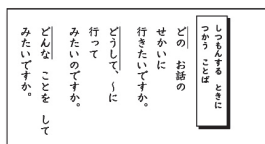 しつもんする ときに
つかう ことば
どの お話の
せかいに
行きたいですか。
どうして、〜に
行って
みたいのですか。
どんな ことを して
みたいですか。